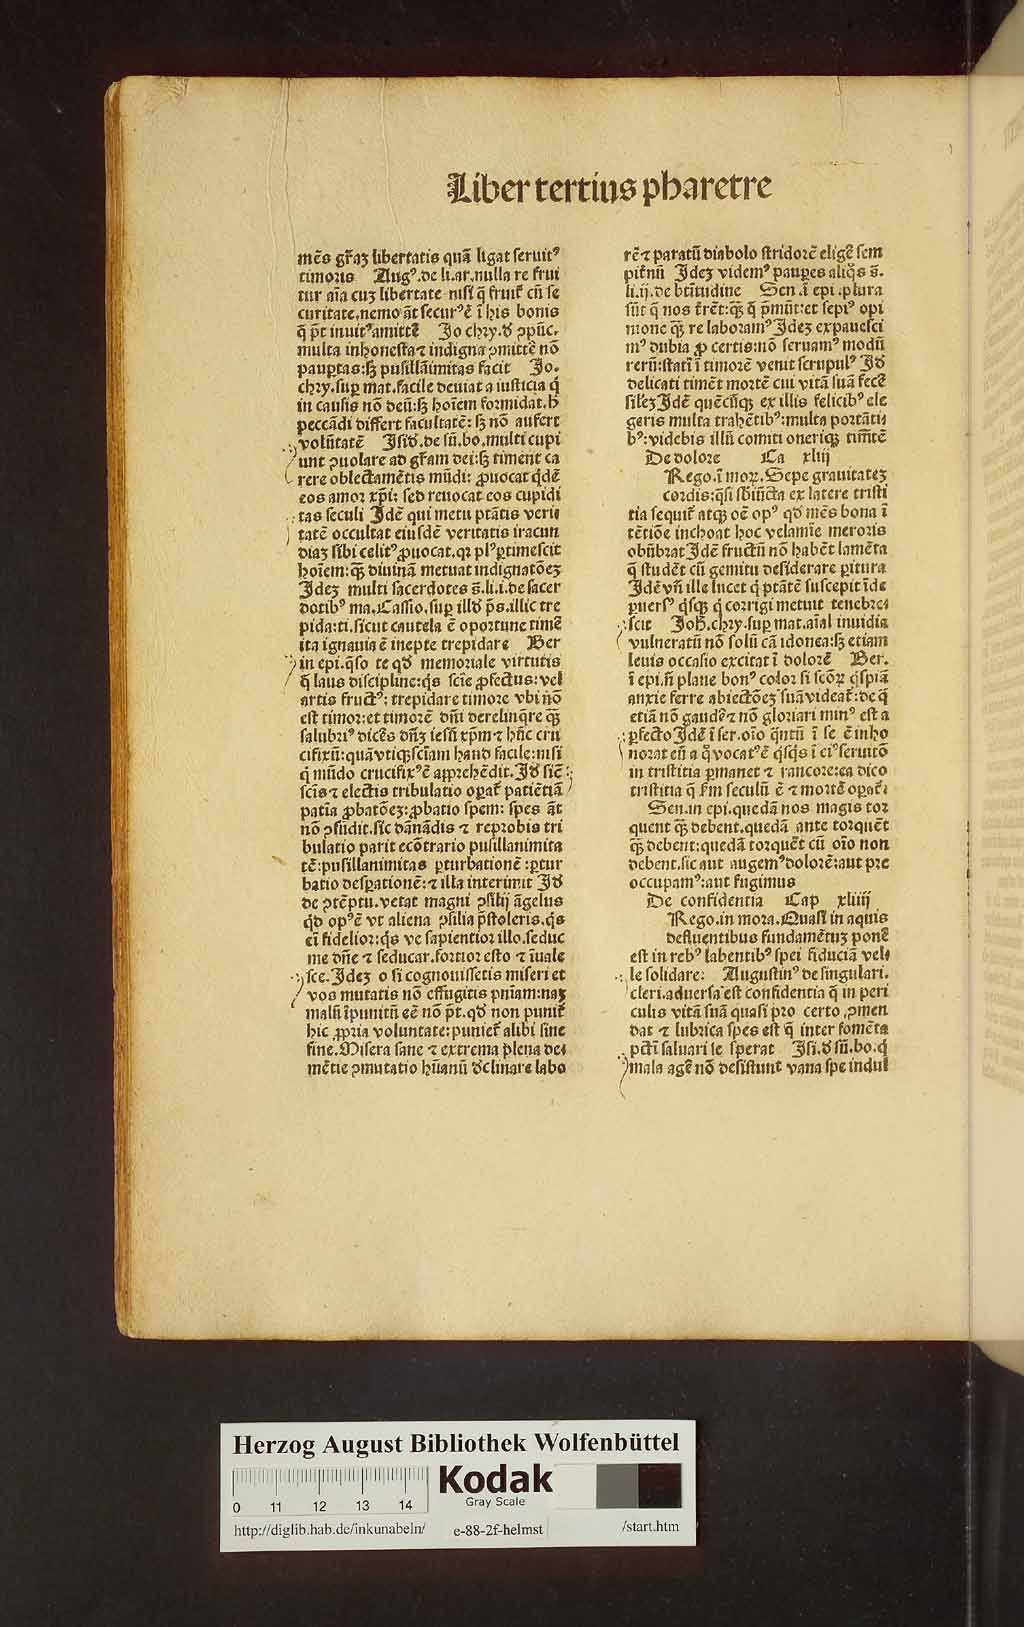 Liber tertius pharetre
mēs gr̄aʒ libertatis quā ligat seruitꝰ
timoris Augꝰ.de li.ar.nulla re frui
tur aīa cuʒ libertate nisi q̄ fruit̄ cū se
curitate.nemo āt securꝰē ī his bonis
q̄ p̄t inuitꝰamittē Jo chry.đ ꝯpūc.
multa inhonesta⁊ indigna ꝯmittē nō
paup̱tas:sʒ pusillāimitas facit Jo.
chry.sup̱ mat.facile deuiat a iusticia q̇
in causis nō deū:sʒ hoīem formidat.h̄
peccādi differt facultatē: sʒ nō aufert
volūtatē Jsiđ.de sū.bo.multi cupi
unt ꝯuolare ad gr̄am dei:sʒ timent ca
rere oblectamētis mūdi: ꝓuocat q̇dē
eos amor xp̄i: sed reuocat eos cupidi
tas seculi Jdē qui metu ptātis veri
tatē occultat eiusdē veritatis iracun
diaʒ sibi celitꝰꝓuocat.qꝛ plꝰp̱timescit
hoīem:qʒ̄ diuinā metuat indignatōeʒ
Jdeʒ multi sacerdotes s̄.li.i.de sacer
dotibꝰ ma.Cassio.sup̱ illđ p̄s.illic tre
pida:ti.sicut cautela ē oportune timē
ita ignauia ē inepte trepidare Ber
in epi.q̄so te qđ memoriale virtutis
q̄ laus discipline:q̇s scīe ꝓfectus:vel
artis fructꝰ: trepidare timore vbi nō
est timor:et timorē dn̄i derelinq̄re qʒ̄
salubriꝰ dicēs dn̄ʒ iesū xp̄m⁊ hūc cru
cifixū:quā vtiqʒ scīam haud facile:nisi
q̇ mūdo crucifixꝰē apprehēdit.Jđ sic̄
sc̄is⁊ electis tribulatio op̱at̄ patiētiā
patia ꝓbatōeʒ:ꝓbatio spem: spes āt
nō ꝯfūdit.sic dānādis ⁊ reprobis tri
bulatio parit ecōtrario pusillanimita
tē:pusillanimitas p̱turbationē :p̱tur
batio desp̱ationē:⁊ illa interimit Jđ
de ꝯtēptu.vetat magni ꝯsilij āgelus
qđ opꝰē vt aliena ꝯsilia p̄stoleris.q̇s
ei fidelior:q̇s ve sapientior illo.seduc
me dn̄e ⁊ seducar.fortior esto ⁊ īuale
sce.Jdeʒ o si cognouissetis miseri et
vos mutatis nō effugitis pn̄iam:naʒ
malū īpunitū eē nō p̄t.qđ non punit̄
hic ꝓpria voluntate:puniet̄ alibi sine
fine.Misera sane ⁊ extrema plena de
mētie ꝯmutatio hūanū đclinare labo
rē⁊ paratū diabolo stridorē eligē sem
pit̄nū Jdeʒ videmꝰ paup̱es aliq̊s s̄.
li.ij.de btītudine Sen.ī epi.plura
sūt q̄ nos t̄rēt:qʒ̄ q̄ p̄mūt:et sepiꝰ opi
nione qʒ̄ re laboramꝰ Jdeʒ expauesci
mꝰ dubia ꝓ certis:nō seruamꝰ modū
rerū:statī ī timorē venit scrupulꝰ Jđ
delicati timēt mortē cui vitā suā fecē
sil̄eʒ Jdē quēcūqʒ ex illis felicibꝰ ele
geris multa trahētibꝰ:multa portāti
bꝰ:videbis illū comiti oneriqʒ timētē
De dolore Ca xliij
Rego.ī moꝝ.Sepe grauitateʒ
cordis:q̄si sbiūcta ex latere tristi
tia sequit̄ atqʒ oē opꝰ qđ mēs bona ī
tētiōe inchoat hoc velamīe meroris
obūbrat Jdē fructū nō habēt lamēta
q̄ studēt cū gemitu desiderare p̱itura
Jdē vn̄ ille lucet q̇ ptātē suscepit īde
p̱uersꝰ q̇sqʒ q̇ corrigi metuit tenebre
scit Joh̄.chry.sup̱ mat.aīal inuidia
vulneratū nō solū cā idonea:sʒ etiam
leuis occasio excitat ī dolorē Ber.
ī epi.n̄ plane bonꝰ color si scōꝝ q̇spiā
anxie ferre abiectōeʒ suā videat̄:de q̄
etiā nō gaudē⁊ nō gloriari minꝰ est a
p̱fecto Jdē ī ser.oīo q̄ntū ī se ē inho
norat eū a q̊ vocatꝰē q̇sq̇s ī eiꝰseruitō
in tristitia p̱manet ⁊ rancore:ea dico
tristitia q̄ ſm seculū ē ⁊ mortē op̱at̄.
Sen.in epi.quedā nos magis tor
quent qʒ̄ debent.quedā ante torquēt
qʒ̄ debent:quedā torquēt cū oīo non
debent.sic aut augemꝰdolorē:aut pre
occupamꝰ:aut fugimus
De confidentia Cap xliiij
Rego.in mora.Quasi in aquis
defluentibus fundamētuʒ ponē
est in rebꝰ labentibꝰ spei fiduciā vel
le solidare: Augustinꝰ de singulari.
cleri.aduersa est confidentia q̄ in peri
culis vitā suā quasi pro certo ꝯmen
dat ⁊ lubrica spes est q̄ inter fomēta
pctī saluari se sperat Jsi.đ sū.bo.q̇
mala agē nō desistunt vana spe indul
Herzog August Bibliothek Wolfenbüttel
Kodak
Gray Scale
0 11 12 13 14
http://diglib.hab.de/inkunabeln/ e-88-2f-helmst /start.htm